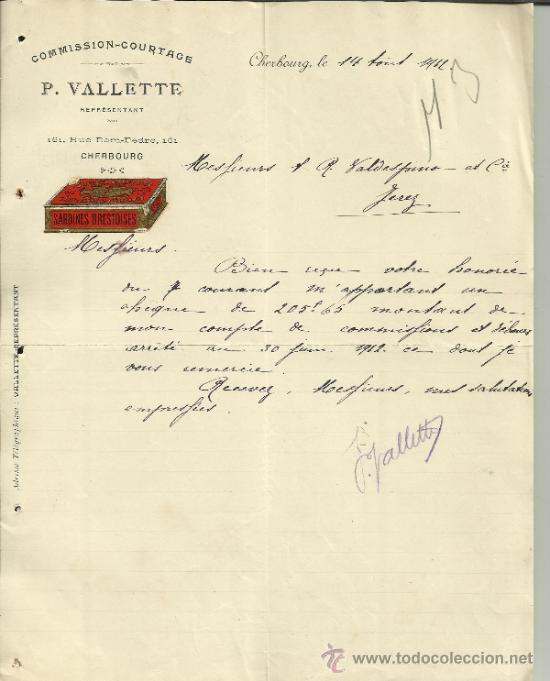 COMMISSION-COURTAGE
P. VALLETTE
REPRÉSENTANT
161, Rue Dom-Pedro, 161
CHERBOURG
SARDINES BRESTOISES
Cherbourg, le 14 Août 1912.
Messieurs A R Valdespino et Cie
Jerez
Messieurs.
Bien reçu votre honorée
du courant m'apportant un
chèque de 205f.65 montant de
mon compte de commissions et débours
arrêté au 30 juin 1912. ce dont je
vous remercie.
Recevez, Messieurs, mes salutations
empressées.
P. Vallette
Adresse Télégraphique : VALLETTE-REPRÉSENTANT
todocoleccion
www.todocoleccion.net